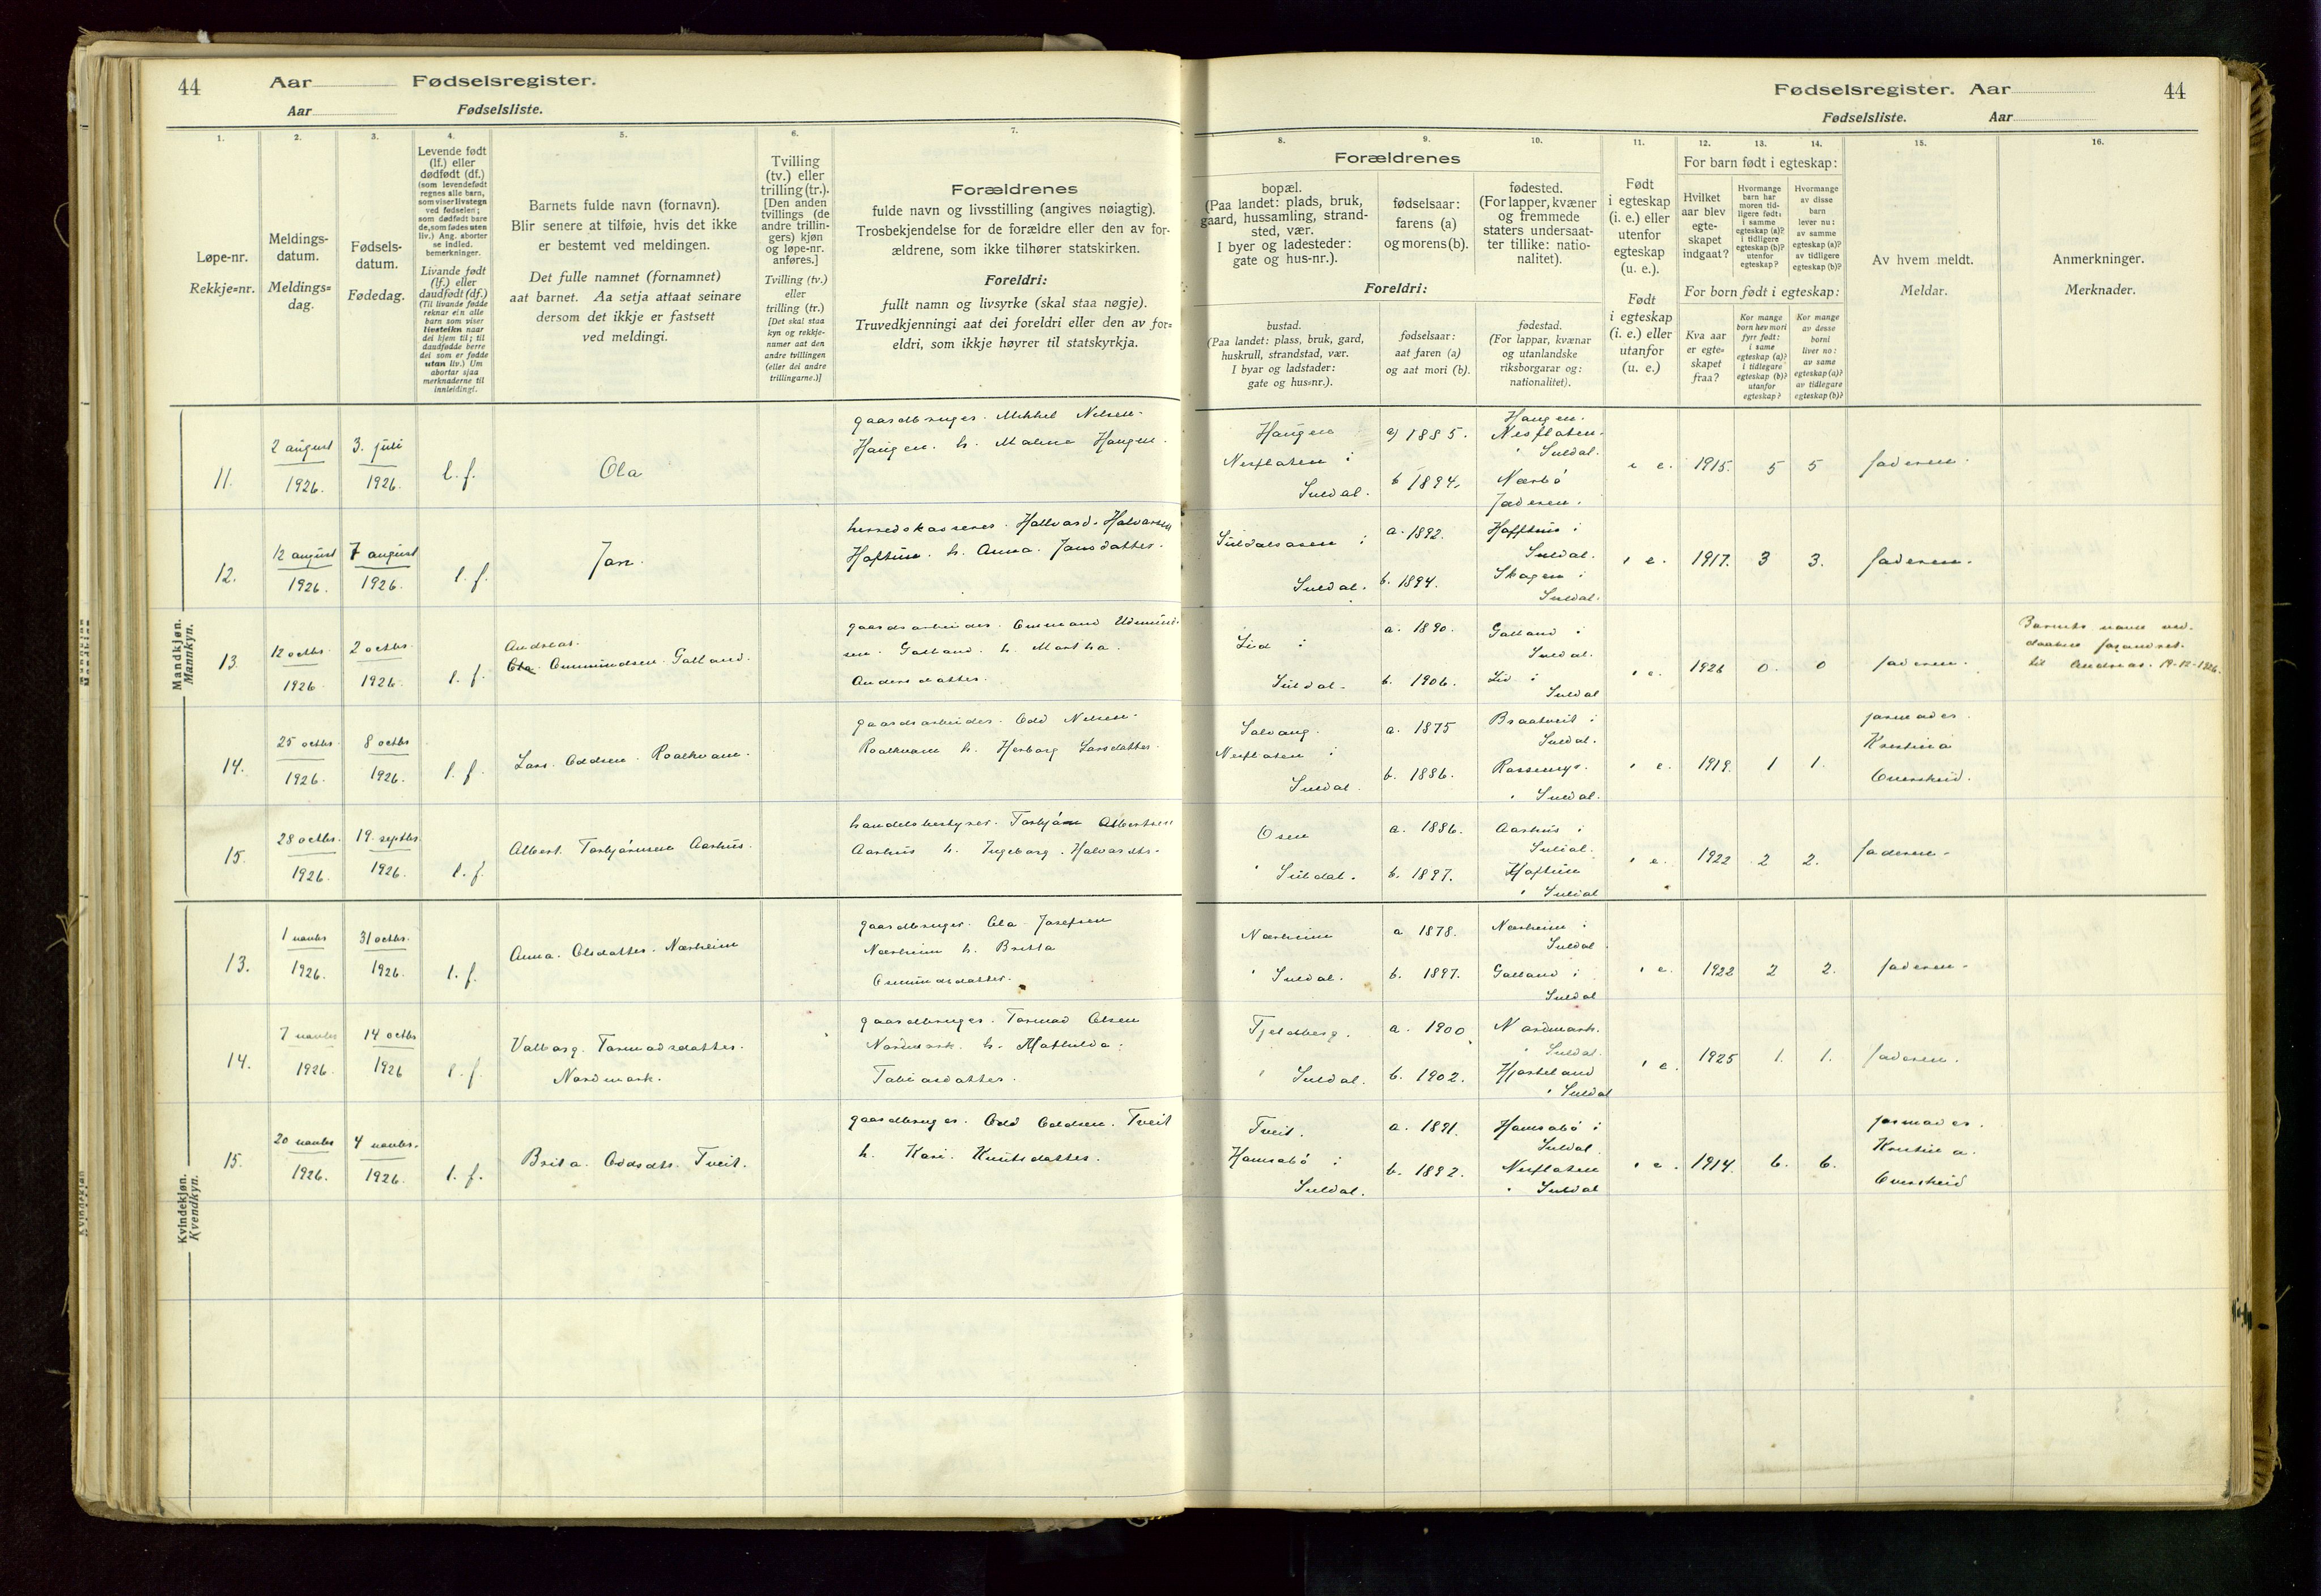 44 Aar Fødselsregister.
Aar Fødselsliste.
1. 2. 3. 4. 5. 6. 7.
Løpe-nr.
Rekkje-nr.
Meldings-
datum.
Meldings-
dag.
Fødsels-
datum.
Fødedag.
Levende født
(lf.) eller
dødfødt (df.)
(som levendefødt
regnes alle barn,
som viser livstegn
ved fødselen;
som dødfødt bare
de, som fødes uten
liv.) Ang. aborter
se indled.
bemerkninger.
Livande født
(lf.) eller
daudfødt (df.)
(Til livande fødde
reknar ein alle
born som viser
livsteikn naar
dei kjem til; til
daudfødde berre
dei som er fødde
utan liv.) Um
abortar sjaa
merknaderne til
innleidingi.
Barnets fulde navn (fornavn).
Blir senere at tilføie, hvis det ikke
er bestemt ved meldingen.
Det fulle namnet (fornamnet)
aat barnet. Aa setja attaat seinare
dersom det ikkje er fastsett
ved meldingi.
Tvilling
(tv.) eller
trilling (tr.).
[Den anden
tvillings (de
andre trillin-
gers) kjøn
og løpe-nr.
anføres.]
Tvilling (tv.)
eller
trilling (tr.)
[Det skal staa
kyn og rekkje-
numer aat den
andre tvillingen
(eller dei andre
trillingarne.)]
Forældrenes
fulde navn og livsstilling (angives nøiagtig).
Trosbekjendelse for de forældre eller den av for-
ældrene, som ikke tilhører statskirken.
Foreldri:
fullt namn og livsyrke (skal staa nøgje).
Truvedkjenningi aat dei foreldri eller den av for-
eldri, som ikkje høyrer til statskyrkja.
Mandkjøn.
Mannkyn.
11. 2 august 1926. 3. juli 1926. l. f. Ola
gaardbruger. Mikkel Nelsen
Haugen. h. Malena Haugen.
12. 12 august 1926. 7 august 1926. l. f. Jan.
herredskasserer. Hallvard. Halvorsen
Hoftun. h. Anna. Jansdatter.
13. 12 octbr. 1926. 2 octbr. 1926. l. f.
Andreas.
Ola Ommundsen. Galland.
gaardsarbeider. Ommund Udmund-
sen. Galland. h. Martha.
Andersdatter.
14. 25 octbr. 1926. 8 octbr 1926. l. f. Lars. Oddsen. Roalkvam.
gaardsarbeider. Odd Nelsen
Roalkvam h. Herborg Larsdatter.
15. 28 octbr. 1926. 19. septbr. 1926. l. f. Albert. Torbjørnsen Aarhus.
handelsbestyrer. Torbjørn Albertsen
Aarhus h. Ingeborg. Halvardtr.
Kvindekjøn.
Kvendkyn.
13. 1 novbr 1926. 31 octbr. 1926. l. f. Anna. Olsdatter. Nærheim
gaardbruger. Ola Josefsen
Nærheim h. Britta
Ommundsdatter.
14. 7 novbr 1926. 14 octbr 1926 l. f. Valborg. Tormodsdatter.
Nordmark.
gaardbruger. Tormod Olsen
Nordmark. h. Mathilda.
Tobiasdatter.
15. 20 novbr 1926. 4 novbr. 1926. l. f. Brita. Oddsdtr. Tveit.
gaardbruger. Odd Oddsen. Tveit
h. Kari. Knutsdatter.
Fødselsregister. Aar 44
Fødselsliste. Aar
8. 9. 10. 11. 12. 13. 14. 15. 16.
Forældrenes
bopæl.
(Paa landet: plads, bruk,
gaard, hussamling, strand-
sted, vær.
I byer og ladesteder:
gate og hus-nr.).
fødselsaar:
farens (a)
og morens (b).
fødested.
(For lapper, kvæner
og fremmede
staters undersaat-
ter tillike: natio-
nalitet).
Foreldri:
bustad.
(Paa landet: plass, bruk, gard,
huskrull, strandstad, vær.
I byar og ladstader:
gate og hus-nr.).
fødselsaar:
aat faren (a)
og aat mori (b).
fødestad.
(For lappar, kvænar
og utanlandske
riksborgarar og:
nationalitet).
Født
i egteskap
(i. e.) eller
utenfor
egteskap
(u. e.).
Født
i egteskap
(i. e.) eller
utanfor
(u. e.)
For barn født i egteskap:
Hvilket
aar blev
egte-
skapet
indgaat?
Hvormange
barn har
moren tid-
ligere født:
i samme
egteskap (a)?
i tidligere
egteskap (b)?
utenfor
egteskap?
Hvormange
av disse
barn
lever nu:
av samme
egteskap (a)?
av tidligere
egteskap (b)?
For born født i egteskap:
Kva aar
er egte-
skapet
fraa?
Kor mange
born hev mori
fyrr født:
i same
egteskap (a)?
i tidlegare
egteskap (b)?
utanfor
egteskap?
Kor mange
av desse
borni
liver no:
av same
egteskap (a)?
av tidlegare
egteskap (b)?
Av hvem meldt.
Meldar.
Anmerkninger.
Merknader.
Haugen
Nesflaten i
Suldal.
a) 1885.
b 1894.
Haugen.
Nesflaten.
i Suldal.
Nærbø
Jæderen.
i e. 1915. 5 5 faderen.
Suldalsosen i
Suldal.
a. 1892.
b. 1894.
Hoftun i
Suldal.
Skogen i
Suldal.
i e. 1917. 3 3. faderen.
Lid i
Suldal.
a. 1890.
b. 1906.
Galland i
Suldal.
Lid i
Suldal
i e. 1926 0. 0 faderen.
Barnets navn ved
daaben forandret
til Andreas. 19-12-1926.
Solvang.
Nesflaten i
Suldal.
a. 1875
b. 1886.
Braatveit i
Suldal.
i Suldal.
i e. 1919. 1 1.
jormoder.
Kristina
Overskeid.
Osen
i Suldal.
a. 1886.
b. 1897.
Aarhus i
Suldal.
Hoftun
i Suldal
i e. 1922 2 2. faderen.
Nærheim
i Suldal.
a 1878.
b. 1897.
Nærheim i
Suldal
Galland i
Suldal
i e. 1922 2 2. faderen.
Tjeldberg.
i Suldal.
a. 1900
b. 1902.
Nordmark.
i Suldal.
Hjorteland
i Suldal
i e. 1925 1. 1. faderen.
Tveit.
Hamrabø i
Suldal.
a. 1891.
b. 1892.
Hamrabø i
Suldal.
Nesflaten
i Suldal
i e. 1914. 6. 6.
jormoder.
Kristina.
Overskeid